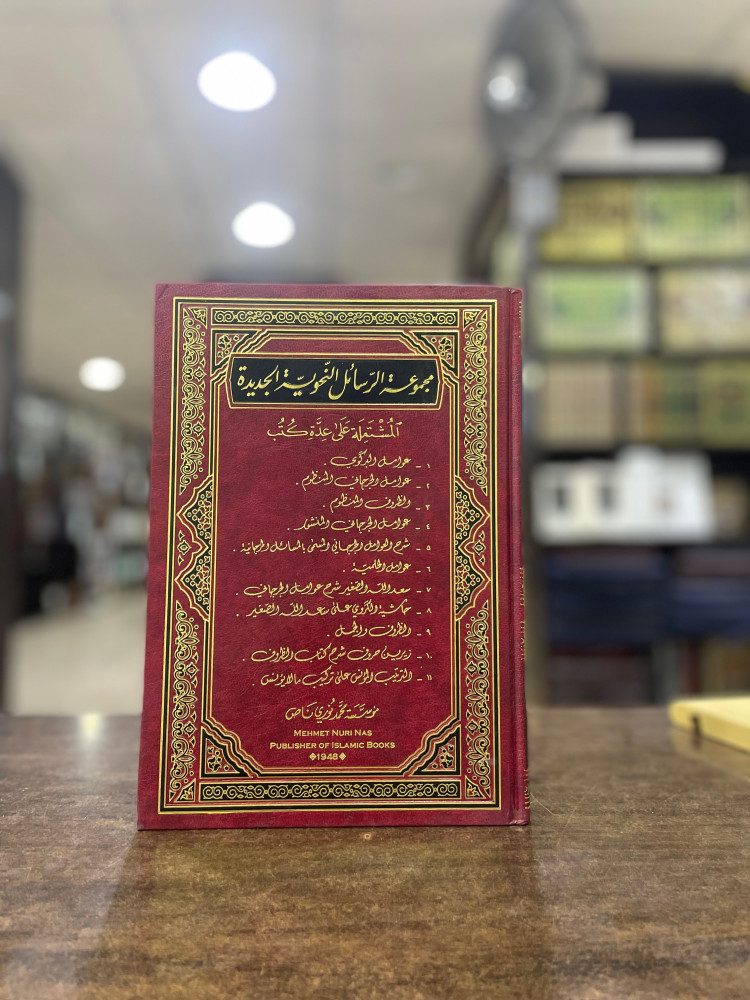 مجموعة الرسائل النحوية الجديدة
المشتملة على عدة كتب
١ - عوامل البركوي .
٢ - عوامل الجرجاني المنظوم .
٣ - الظروف المنظوم .
٤ - عوامل الجرجاني المنثور .
٥ - شرح العوامل الجرجاني المسمى بالمسائل الجرجانية .
٦ - عوامل الحلمية .
٧ - سعد الله الصغير شرح عوامل الجرجاني .
٨ - حاشية الكروي على سعد الله الصغير .
٩ - الظروف والجمل .
١٠ - زيرين حروف شرح كتاب الظروف .
١١ - الترتيب المؤنس على تركيب مالايؤنس .
مؤسسة محمد نوري ناص
MEHMET NURI NAS
PUBLISHER OF ISLAMIC BOOKS
1948